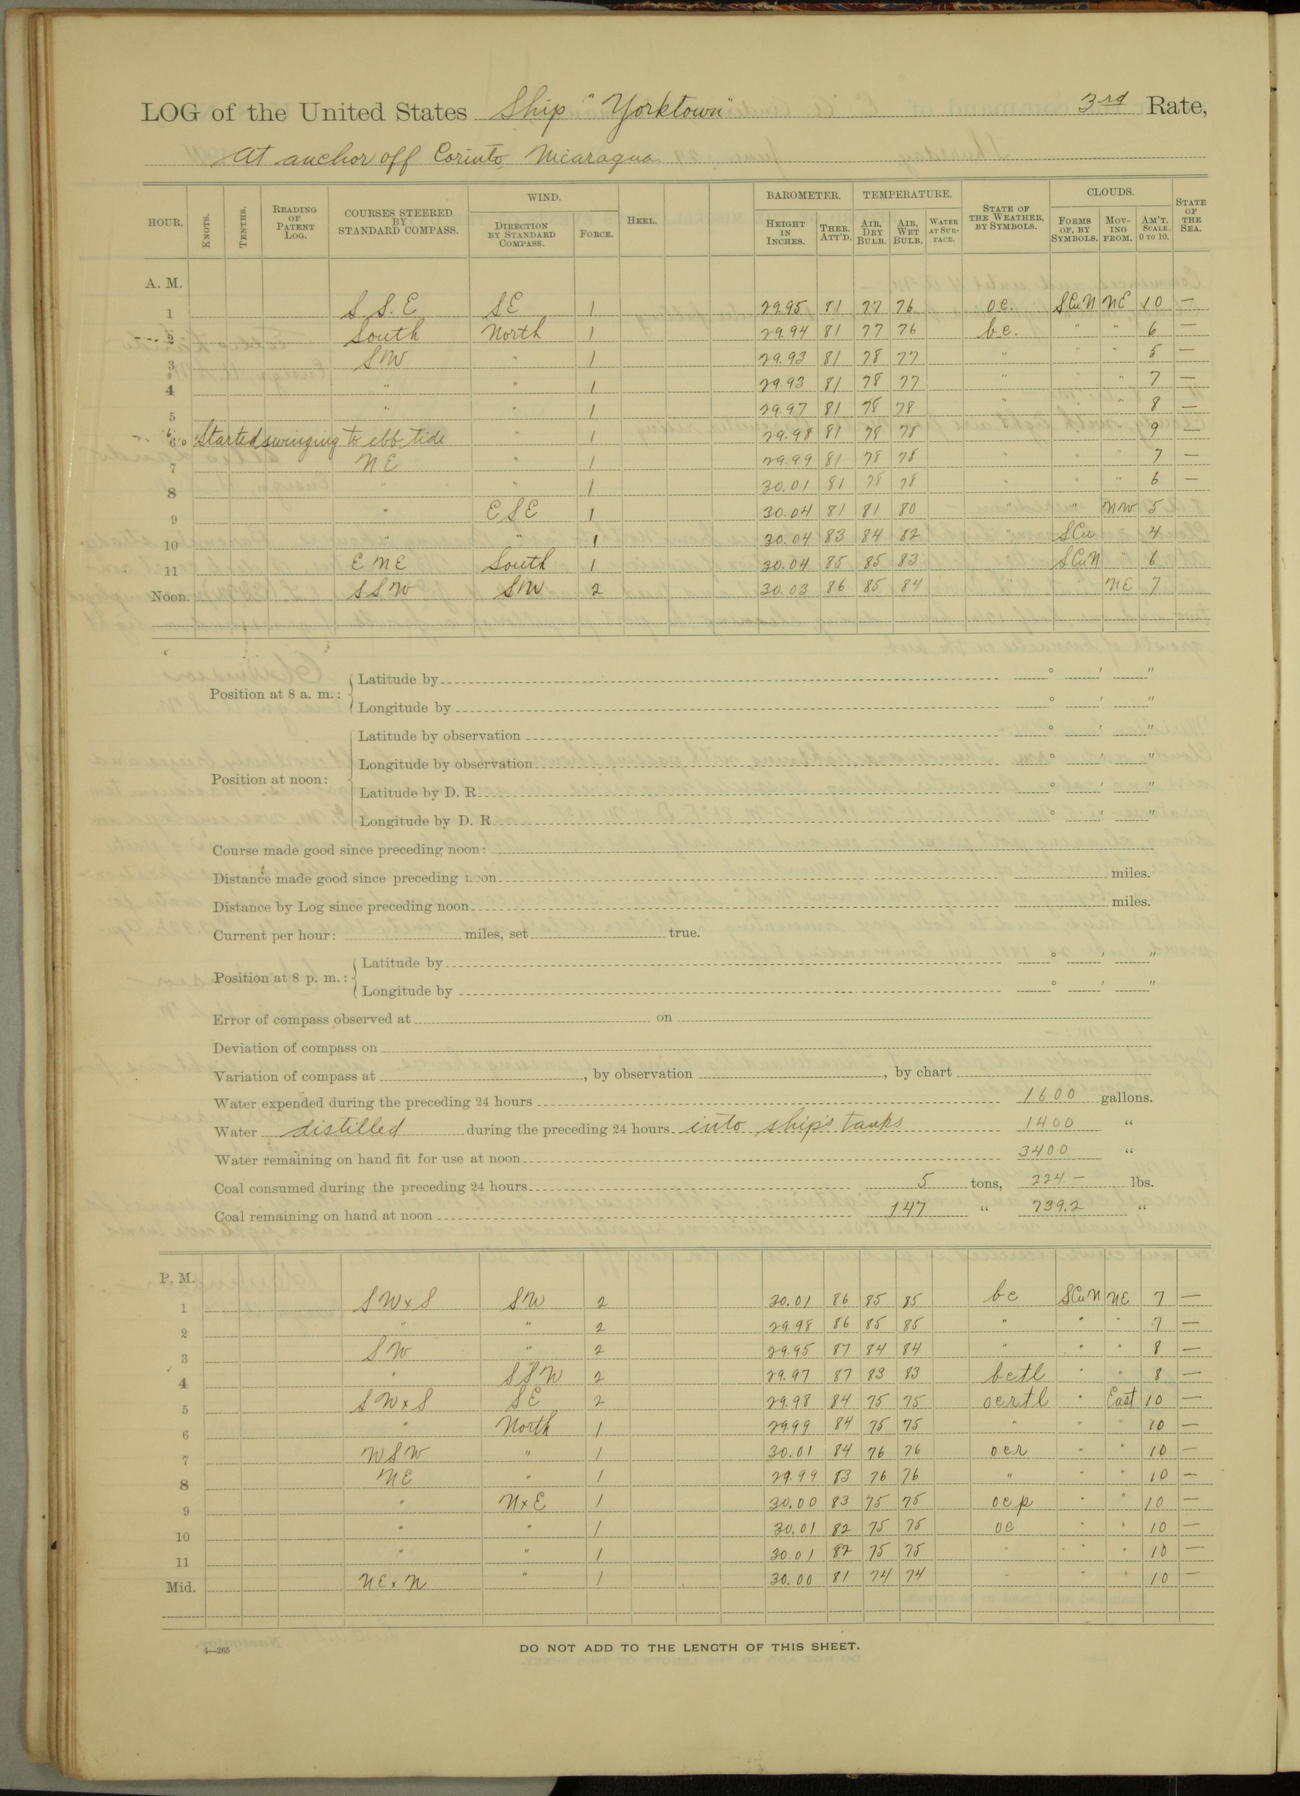 LOG of the United States Ship "Yorktown" 3rd Rate,
At anchor off Corinto, Nicaragua
HOUR. KNOTS. TENTHS. READING OF PATENT LOG. COURSES STEERED BY STANDARD COMPASS. WIND. DIRECTION BY STANDARD COMPASS. FORCE. HEEL. BAROMETER. HEIGHT IN INCHES. THER. ATT'D. TEMPERATURE. AIR, DRY BULB. AIR, WET BULB. WATER AT SURFACE. STATE OF THE WEATHER, BY SYMBOLS. CLOUDS. FORMS OF, BY SYMBOLS. MOVING FROM. AM'T. SCALE. 0 TO 10. STATE OF THE SEA.
A. M.
1 S S. E SE 1 29.95 81 77 76 oc. SCuN NE 10 —
2 South North 1 29.94 81 77 76 bc. " " 6 —
3 SW " 1 29.93 81 78 77 " " " 5 —
4 " " 1 29.93 81 78 77 " " " 7 —
5 " " 1 29.97 81 78 78 " " " 8 —
6 Started swinging to ebb tide " 1 29.98 81 78 78 " " " 9 —
7 NE " 1 29.99 81 78 78 " " " 7 —
8 " " 1 30.01 81 78 78 " " " 6 —
9 " ESE 1 30.04 81 81 80 " " NW 5
10 " " 1 30.04 83 84 82 " SCu " 4
11 ENE South 1 30.04 85 85 83 " SCuN " 6
Noon. SSW SW 2 30.03 86 85 84 " " NE 7
Position at 8 a. m.: Latitude by ° ' "
Longitude by ° ' "
Position at noon: Latitude by observation ° ' "
Longitude by observation ° ' "
Latitude by D. R. ° ' "
Longitude by D. R. ° ' "
Course made good since preceding noon:
Distance made good since preceding noon miles.
Distance by Log since preceding noon miles.
Current per hour: miles, set true.
Position at 8 p. m.: Latitude by ° ' "
Longitude by ° ' "
Error of compass observed at on
Deviation of compass on
Variation of compass at , by observation , by chart
Water expended during the preceding 24 hours 1600 gallons.
Water distilled during the preceding 24 hours into ship's tanks 1400 "
Water remaining on hand fit for use at noon 3400 "
Coal consumed during the preceding 24 hours 5 tons, 224 — lbs.
Coal remaining on hand at noon 147 " 739.2 "
P. M.
1 SWxS SW 2 30.01 86 85 85 bc SCuN NE 7 —
2 " " 2 29.98 86 85 85 " " " 7 —
3 SW " 2 29.95 87 84 84 " " " 8 —
4 " SSW 2 29.97 87 83 83 bctl " " 8 —
5 SWxS SE 2 29.98 84 75 75 ocrtl " East 10 —
6 " North 1 29.99 84 75 75 " " " 10 —
7 WSW " 1 30.01 84 76 76 ocr " " 10 —
8 NE " 1 29.99 83 76 76 " " " 10 —
9 " NxE 1 30.00 83 75 75 ocp " " 10 —
10 " " 1 30.01 82 75 75 oc " " 10 —
11 " " 1 30.01 82 75 75 " " " 10 —
Mid. NExN " 1 30.00 81 74 74 " " " 10 —
4—265 DO NOT ADD TO THE LENGTH OF THIS SHEET.